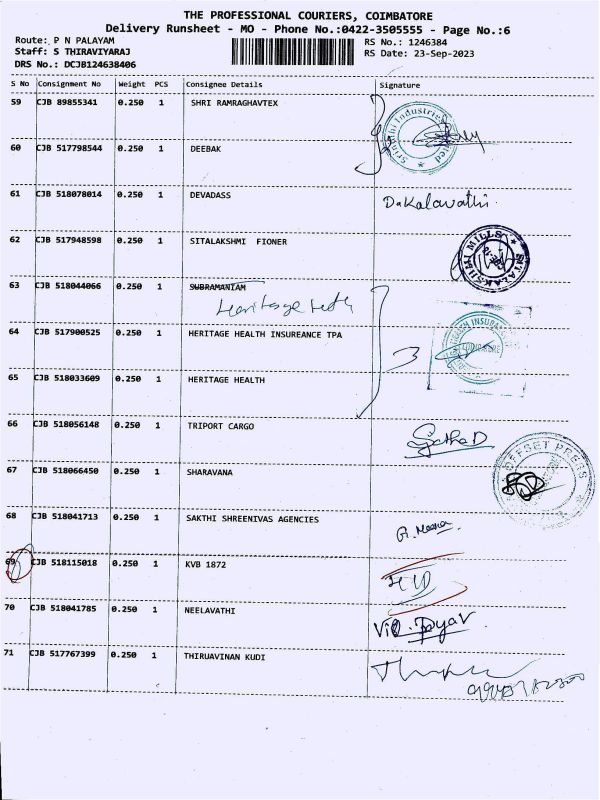 THE PROFESSIONAL COURIERS, COIMBATORE
Delivery Runsheet - MO - Phone No.:0422-3505555 - Page No.:6
Route: P N PALAYAM
RS No.: 1246384
Staff: S THIRAVIYARAJ
RS Date: 23-Sep-2023
DRS No.: DCJB124638406
S No Consignment No Weight PCS Consignee Details Signature
59 CJB 89855341 0.250 1 SHRI RAMRAGHAVTEX
60 CJB 517798544 0.250 1 DEEBAK
61 CJB 518078014 0.250 1 DEVADASS D.Kalavathi
62 CJB 517948598 0.250 1 SITALAKSHMI FIONER
63 CJB 518044066 0.250 1 SUBRAMANIAM
Heritage Health
64 CJB 517900525 0.250 1 HERITAGE HEALTH INSUREANCE TPA 3
65 CJB 518033609 0.250 1 HERITAGE HEALTH
66 CJB 518056148 0.250 1 TRIPORT CARGO
OFFSET PRESS
67 CJB 518066450 0.250 1 SHARAVANA
68 CJB 518041713 0.250 1 SAKTHI SHREENIVAS AGENCIES
69 CJB 518115018 0.250 1 KVB 1872
70 CJB 518041785 0.250 1 NEELAVATHI
71 CJB 517767399 0.250 1 THIRUAVINAN KUDI